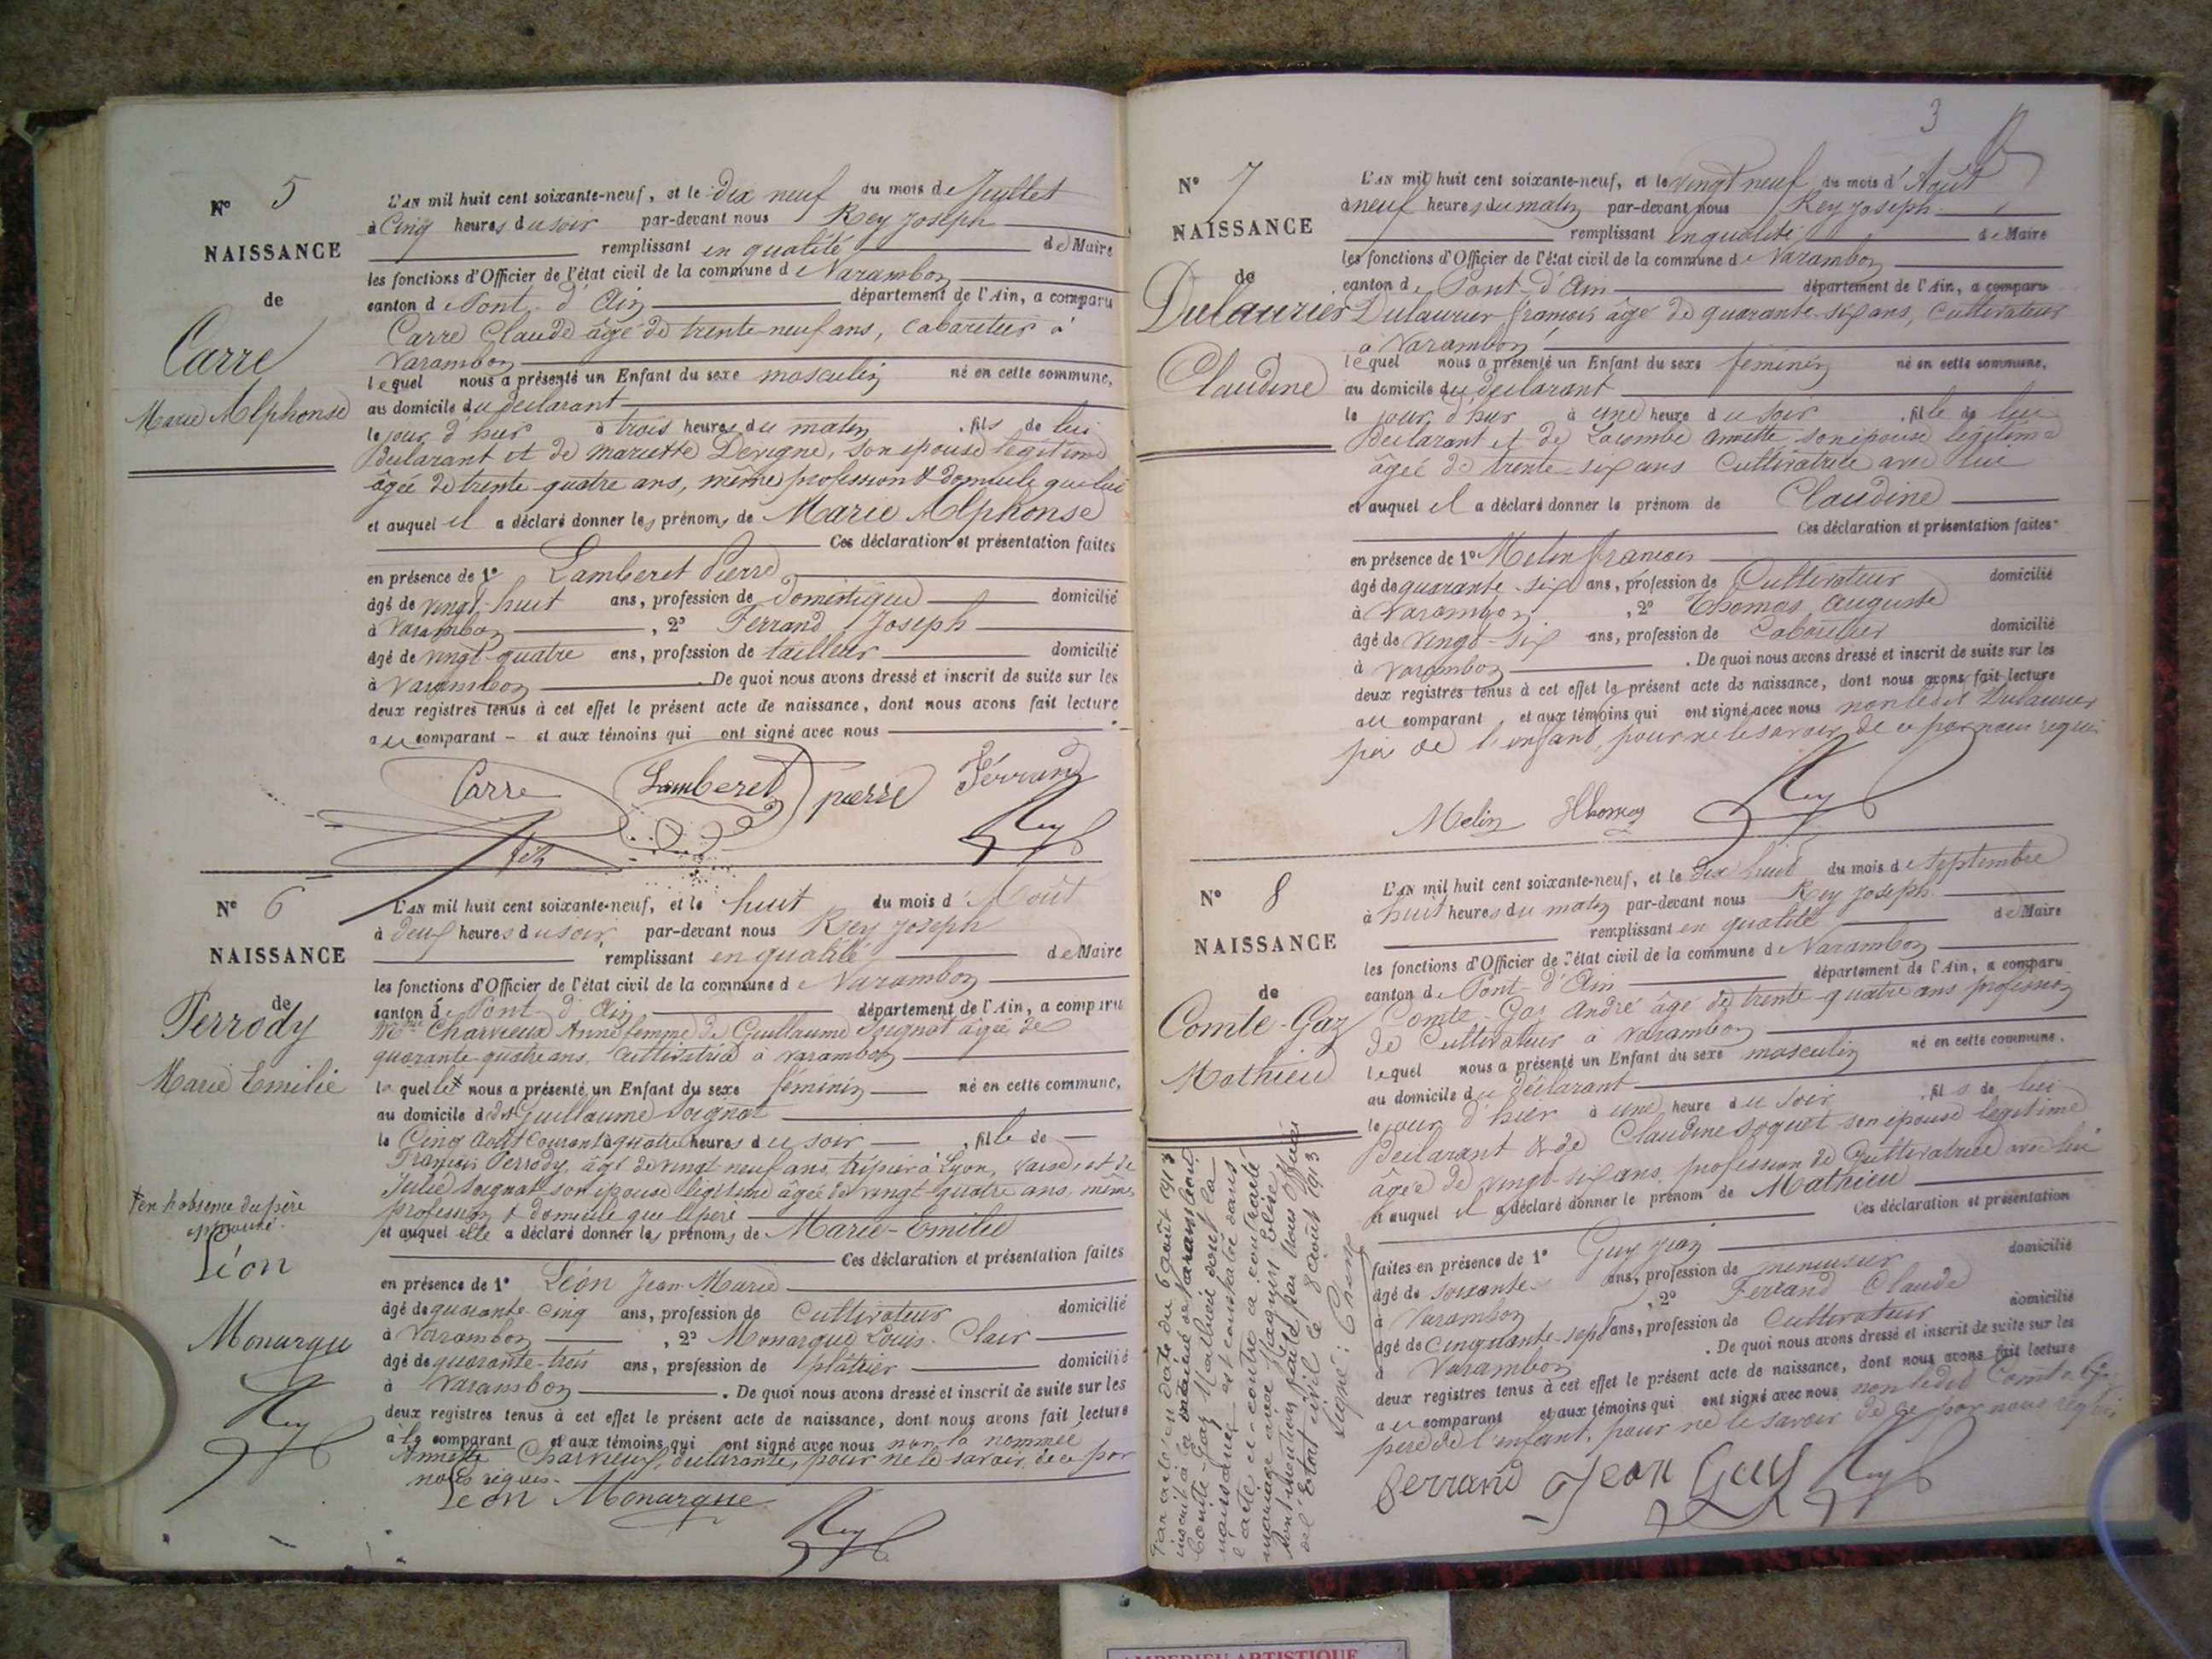 N° 5
NAISSANCE
de
Carre
Marie Alphonse
L'AN mil huit cent soixante-neuf, et le dix neuf du mois de Juillet
à Cinq heures du soir par-devant nous Rey Joseph
remplissant en qualité de Maire
les fonctions d'Officier de l'état civil de la commune de Varambon
canton de Pont d'Ain département de l'Ain, a comparu
Carre Claude âgé de trente-neuf ans, Cabaretier à
Varambon
lequel nous a présenté un Enfant du sexe masculin né en cette commune,
au domicile du déclarant
le jour d'hier à trois heures du matin, fils de lui
déclarant et de Mariette Devigne, son épouse légitime
âgée de trente-quatre ans, même profession & domicile que lui
et auquel il a déclaré donner les prénoms de Marie Alphonse
Ces déclaration et présentation faites
en présence de 1° Lamberet Pierre
âgé de vingt-huit ans, profession de Domestique domicilié
à Varambon, 2° Ferrand Joseph
âgé de vingt-quatre ans, profession de tailleur domicilié
à Varambon. De quoi nous avons dressé et inscrit de suite sur les
deux registres tenus à cet effet le présent acte de naissance, dont nous avons fait lecture
au comparant et aux témoins qui ont signé avec nous
Carre Lamberet pierre Ferrand
Rey
N° 6
NAISSANCE
de
Perrody
Marie Emilie
L'AN mil huit cent soixante-neuf, et le huit du mois d'Août
à deux heures du soir par-devant nous Rey Joseph
remplissant en qualité de Maire
les fonctions d'Officier de l'état civil de la commune de Varambon
canton de Pont d'Ain département de l'Ain, a comparu
Charvieux Anne femme de Guillaume Soignat âgée de
quarante-quatre ans, Cultivatrice à Varambon
laquelle nous a présenté un Enfant du sexe féminin né en cette commune,
au domicile dudit Guillaume Soignat
le Cinq Août courant à quatre heures du soir, fille de
François Perrody, âgé de vingt neuf ans, tripier à Lyon, Vaise, et de
Julie Soignat son épouse légitime âgée de vingt-quatre ans, même
profession & domicile que le père
et auquel elle a déclaré donner les prénoms de Marie-Emilie
Ces déclaration et présentation faites
en présence de 1° Léon Jean-Marie
âgé de quarante-cinq ans, profession de Cultivateur domicilié
à Varambon, 2° Monarque Louis-Clair
âgé de quarante-trois ans, profession de plâtrier domicilié
à Varambon. De quoi nous avons dressé et inscrit de suite sur les
deux registres tenus à cet effet le présent acte de naissance, dont nous avons fait lecture
à la comparant et aux témoins qui ont signé avec nous non la nommée
Annette Charvieux, déclarante, pour ne le savoir de ce par
nous requis.
Léon Monarque
Rey
en l'absence du père
approuvé.
Léon
Monarque
Rey
3
N° 7
NAISSANCE
de
Dulaurier
Claudine
L'AN mil huit cent soixante-neuf, et le vingt neuf du mois d'Août
à neuf heures du matin par-devant nous Rey Joseph
remplissant en qualité de Maire
les fonctions d'Officier de l'état civil de la commune de Varambon
canton de Pont-d'Ain département de l'Ain, a comparu
Dulaurier françois âgé de quarante-six ans, Cultivateur
à Varambon
lequel nous a présenté un Enfant du sexe féminin né en cette commune,
au domicile du déclarant
le jour d'hier à une heure du soir, fille de lui
déclarant et de Lacombe Annette son épouse légitime
âgée de trente-six ans Cultivatrice avec lui
et auquel il a déclaré donner le prénom de Claudine
Ces déclaration et présentation faites
en présence de 1° Melin françois
âgé de quarante-six ans, profession de Cultivateur domicilié
à Varambon, 2° Thomas Auguste
âgé de vingt-six ans, profession de Cabaretier domicilié
à Varambon. De quoi nous avons dressé et inscrit de suite sur les
deux registres tenus à cet effet le présent acte de naissance, dont nous avons fait lecture
au comparant et aux témoins qui ont signé avec nous non ledit Dulaurier
père de l'enfant, pour ne le savoir de ce par nous requis
Melin Thomas Rey
N° 8
NAISSANCE
de
Comte-Gaz
Mathieu
L'AN mil huit cent soixante-neuf, et le dix huit du mois de Septembre
à huit heures du matin par-devant nous Rey Joseph
remplissant en qualité de Maire
les fonctions d'Officier de l'état civil de la commune de Varambon
canton de Pont-d'Ain département de l'Ain, a comparu
Comte-Gaz André âgé de trente-quatre ans profession
de Cultivateur à Varambon
lequel nous a présenté un Enfant du sexe masculin né en cette commune,
au domicile du déclarant
le jour d'hier à une heure du soir, fils de lui
déclarant & de Claudine Soquet son épouse légitime
âgée de vingt-six ans, profession de Cultivatrice avec lui
et auquel il a déclaré donner le prénom de Mathieu
Ces déclaration et présentation
faites en présence de 1° Guy Jean domicilié
âgé de soixante ans, profession de menuisier
à Varambon, 2° Ferrand Claude
âgé de Cinquante-sept ans, profession de Cultivateur domicilié
à Varambon. De quoi nous avons dressé et inscrit de suite sur les
deux registres tenus à cet effet le présent acte de naissance, dont nous avons fait lecture
au comparant et aux témoins qui ont signé avec nous non ledit Comte-Gaz
père de l'enfant, pour ne le savoir de ce par nous requis
Ferrand Jean Guy Rey
Par acte en date du 6 août 1913
inscrit à la mairie de
Comte-Gaz Mathieu dont la
naissance est constatée dans
l'acte ci-contre a contracté
mariage avec Elise
dont mention faite par Nous Officier
de l'Etat civil le 8 août 1913
Signé:
AMPERIEU ARTISTIQUE